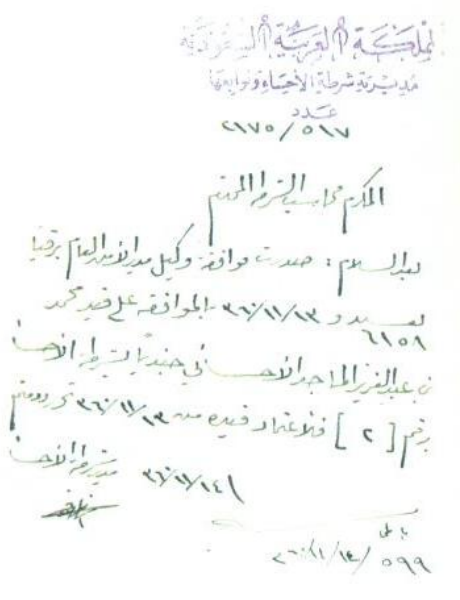 المملكة العربية السعودية
مديرية شرطة الأحساء وتوابعها
عدد
٥١٧ / ٢١٧٥
المكرم محاسب الشرطة المحترم
بعد السلام : صدرت موافقة وكيل مدير الأمن العام برقيا
بعدد ٦١٥٨ و ٣٦٠/١١/١٣ بالموافقة على قيد محمد
بن عبد العزيز الماجد الأحسائي جنديًا بشرطة الأحساء
برقم [ ٢ ] فلاعتماد قيده من ٣٦٠/١١/١٣ تحرر ودمتم
٣٦٠/١١/١٤ مدير شرطة الأحساء
٥٩٩ / ١٤/١١/٣٦٠